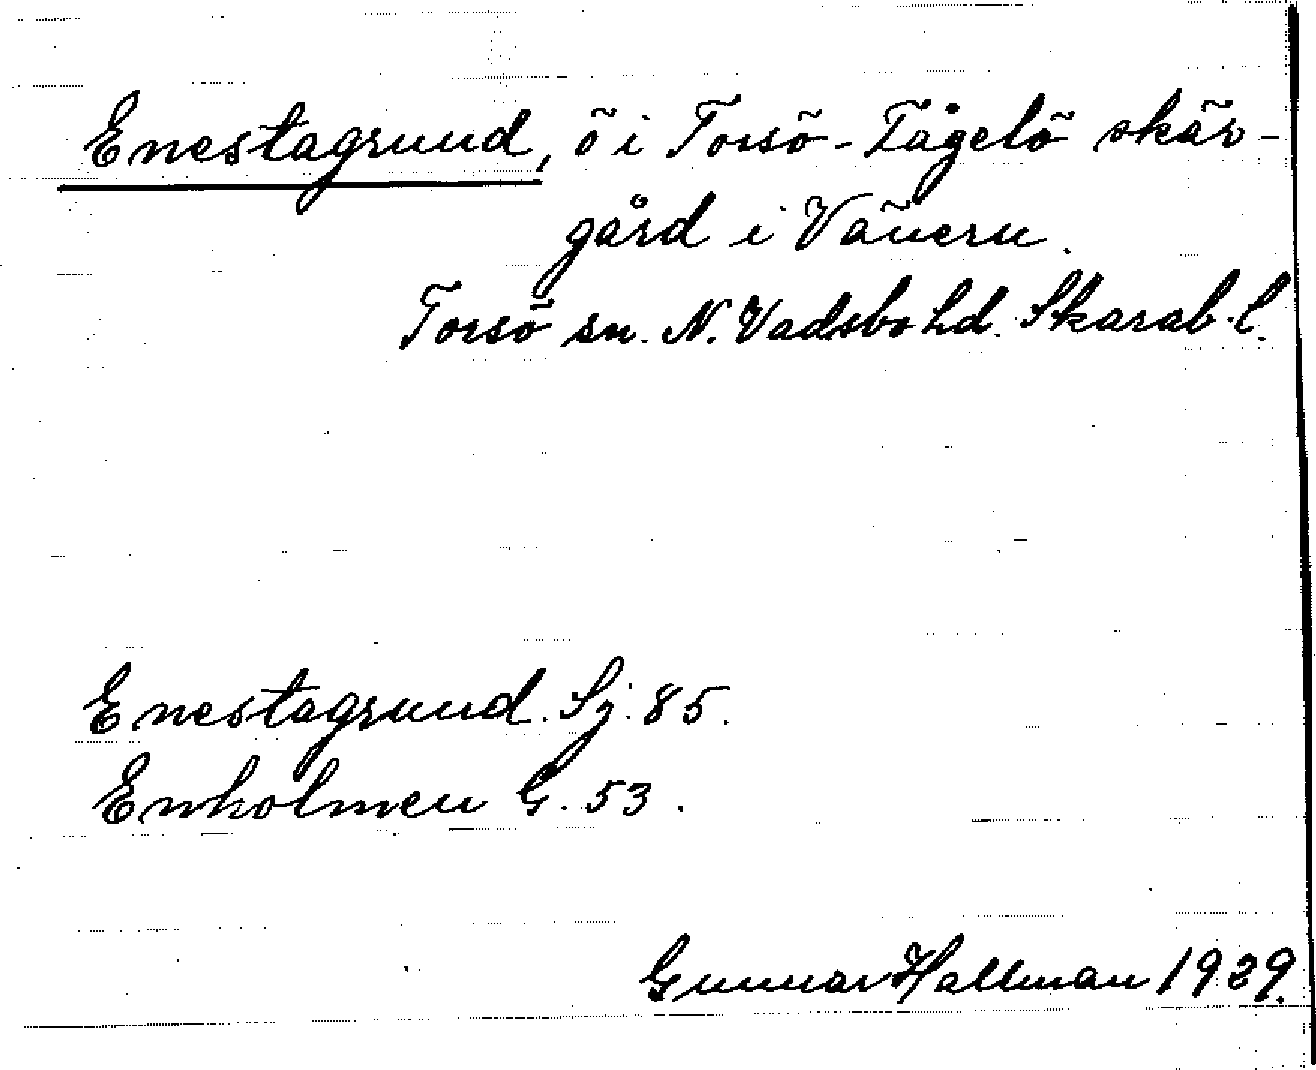 Enestagrund, ö i Torsö-Fågelö skär-
gård i Vänern.
Torsö sn. N. Vadsbo hd. Skarab. l.
Enestagrund. Sj. 85.
Enholmen G. 53.
Gunnar Hallman 1929.